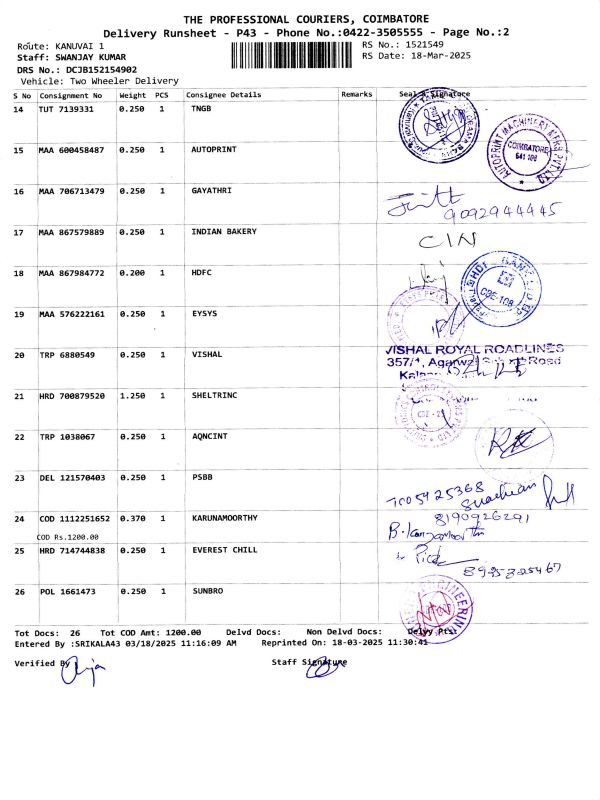 THE PROFESSIONAL COURIERS, COIMBATORE
Delivery Runsheet - P43 - Phone No.:0422-3505555 - Page No.:2
Route: KANUVAI 1
RS No.: 1521549
Staff: SWANJAY KUMAR
RS Date: 18-Mar-2025
DRS No.: DCJB152154902
Vehicle: Two Wheeler Delivery
S No Consignment No Weight PCS Consignee Details Remarks Seal & Signature
14 TUT 7139331 0.250 1 TNGB
15 MAA 600458487 0.250 1 AUTOPRINT
AUTOPRINT MACHINERY MFRS PVT LTD
COIMBATORE
641 108
16 MAA 706713479 0.250 1 GAYATHRI
9092944445
17 MAA 867579889 0.250 1 INDIAN BAKERY
CIN
18 MAA 867984772 0.200 1 HDFC
HDFC BANK LTD
CBE-108
19 MAA 576222161 0.250 1 EYSYS
20 TRP 6880549 0.250 1 VISHAL
VISHAL ROYAL ROADLINES
357/1, Agarwal Road
21 HRD 700879520 1.250 1 SHELTRINC
22 TRP 1038067 0.250 1 AQNCINT
23 DEL 121570403 0.250 1 PSBB
24 COD 1112251652 0.370 1 KARUNAMOORTHY
8190926291
COD Rs.1200.00
25 HRD 714744838 0.250 1 EVEREST CHILL
8925325467
26 POL 1661473 0.250 1 SUNBRO
ENGINEERING
Tot Docs: 26 Tot COD Amt: 1200.00 Delvd Docs: Non Delvd Docs: Delvy Pts:
Entered By :SRIKALA43 03/18/2025 11:16:09 AM Reprinted On: 18-03-2025 11:30:41
Verified By
Staff Signature